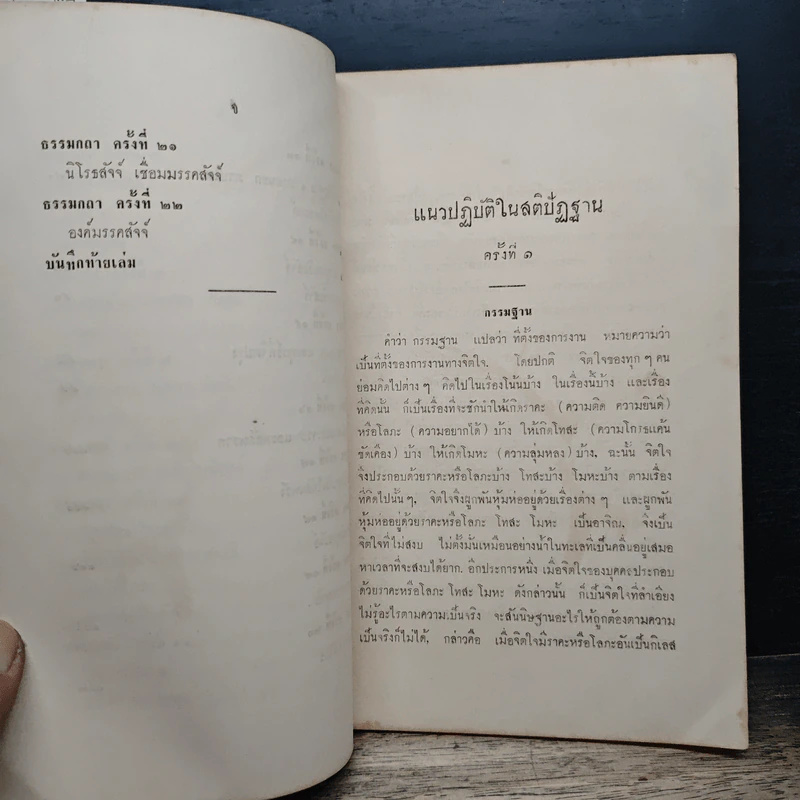 จ
ธรรมกถา ครั้งที่ ๒๑
นิโรธสัจจ์ เชื่อมมรรคสัจจ์
ธรรมกถา ครั้งที่ ๒๒
องค์มรรคสัจจ์
บันทึกท้ายเล่ม
แนวปฏิบัติในสติปัฏฐาน
ครั้งที่ ๑
กรรมฐาน
คำว่า กรรมฐาน แปลว่า ที่ตั้งของการงาน หมายความว่า
เป็นที่ตั้งของการงานทางจิตใจ. โดยปกติ จิตใจของทุก ๆ คน
ย่อมคิดไปต่าง ๆ คิดไปในเรื่องโน้นบ้าง ในเรื่องนี้บ้าง และเรื่อง
ที่คิดนั้น ก็เป็นเรื่องที่จะชักนำให้เกิดราคะ (ความติด ความยินดี)
หรือโลภะ (ความอยากได้) บ้าง ให้เกิดโทสะ (ความโกรธแค้น
ขัดเคือง) บ้าง ให้เกิดโมหะ (ความลุ่มหลง) บ้าง. ฉะนั้น จิตใจ
จึงประกอบด้วยราคะหรือโลภะบ้าง โทสะบ้าง โมหะบ้าง ตามเรื่อง
ที่คิดไปนั้น ๆ. จิตใจจึงผูกพันหุ้มห่ออยู่ด้วยเรื่องต่าง ๆ และผูกพัน
หุ้มห่ออยู่ด้วยราคะหรือโลภะ โทสะ โมหะ เป็นอาจิณ. จึงเป็น
จิตใจที่ไม่สงบ ไม่ตั้งมั่นเหมือนอย่างน้ำในทะเลที่เป็นคลื่นอยู่เสมอ
หาเวลาที่จะสงบได้ยาก. อีกประการหนึ่ง เมื่อจิตใจของบุคคลประกอบ
ด้วยราคะหรือโลภะ โทสะ โมหะ ดังกล่าวนั้น ก็เป็นจิตใจที่ลำเอียง
ไม่รู้อะไรตามความเป็นจริง จะสันนิษฐานอะไรให้ถูกต้องตามความ
เป็นจริงก็ไม่ได้. กล่าวคือ เมื่อจิตใจมีราคะหรือโลภะอันเป็นกิเลส